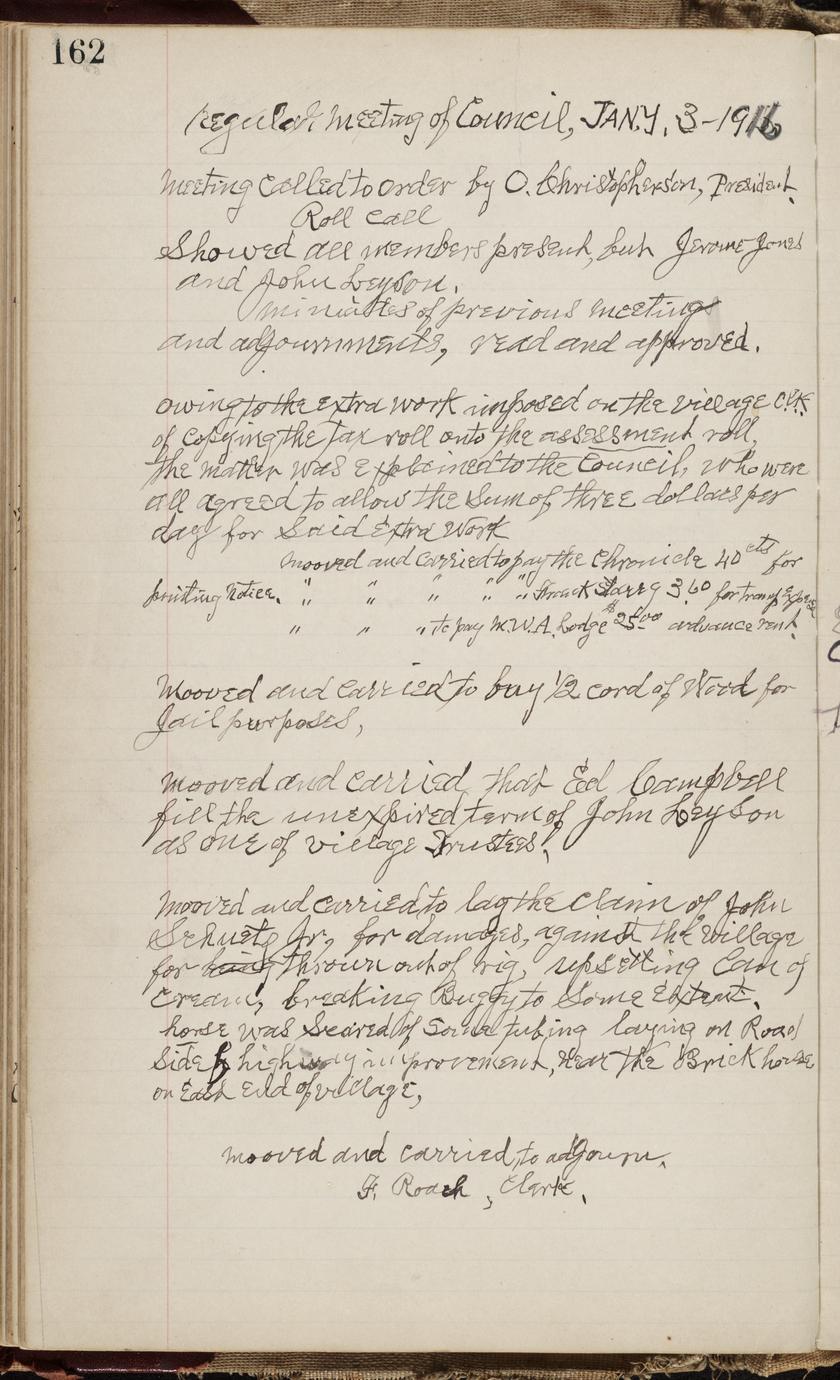 162
regular Meeting of Council, JANY, 3-1916
Meeting called to order by O. Christopherson, President.
Roll Call
Showed all members present, but Jerome Jones
and John Leyson.
miniutes of previous meetings
and adjournments, read and approved.
owing to the extra work imposed on the village Clk.
of copying the Tax roll onto the assessment roll,
the matter was explained to the Council, who were
all agreed to allow the Sum of three dollars per
day for Said Extra Work
mooved and carried to pay the Chronicle 40 cts for
printing notice. " " " " " Starry 3.60 for
" " " to pay M.W.A. Lodge $25.00 advance rent.
Mooved and carried to buy 1/2 cord of Wood for
Jail purposes,
mooved and carried that Ed Campbell
fill the unexpired term of John Leyson
as one of village Trustees,
mooved and carried, to lay the claim of John
Schuetz Jr, for damages, against the village
for being thrown out of rig, upsetting Can of
Cream, breaking Buggy to Some Extent.
horse was Scared of Some tubing laying on Road
side by highway improvement, near the Brick house
on East End of village,
mooved and carried, to adjourn.
F. Roach, Clerk.